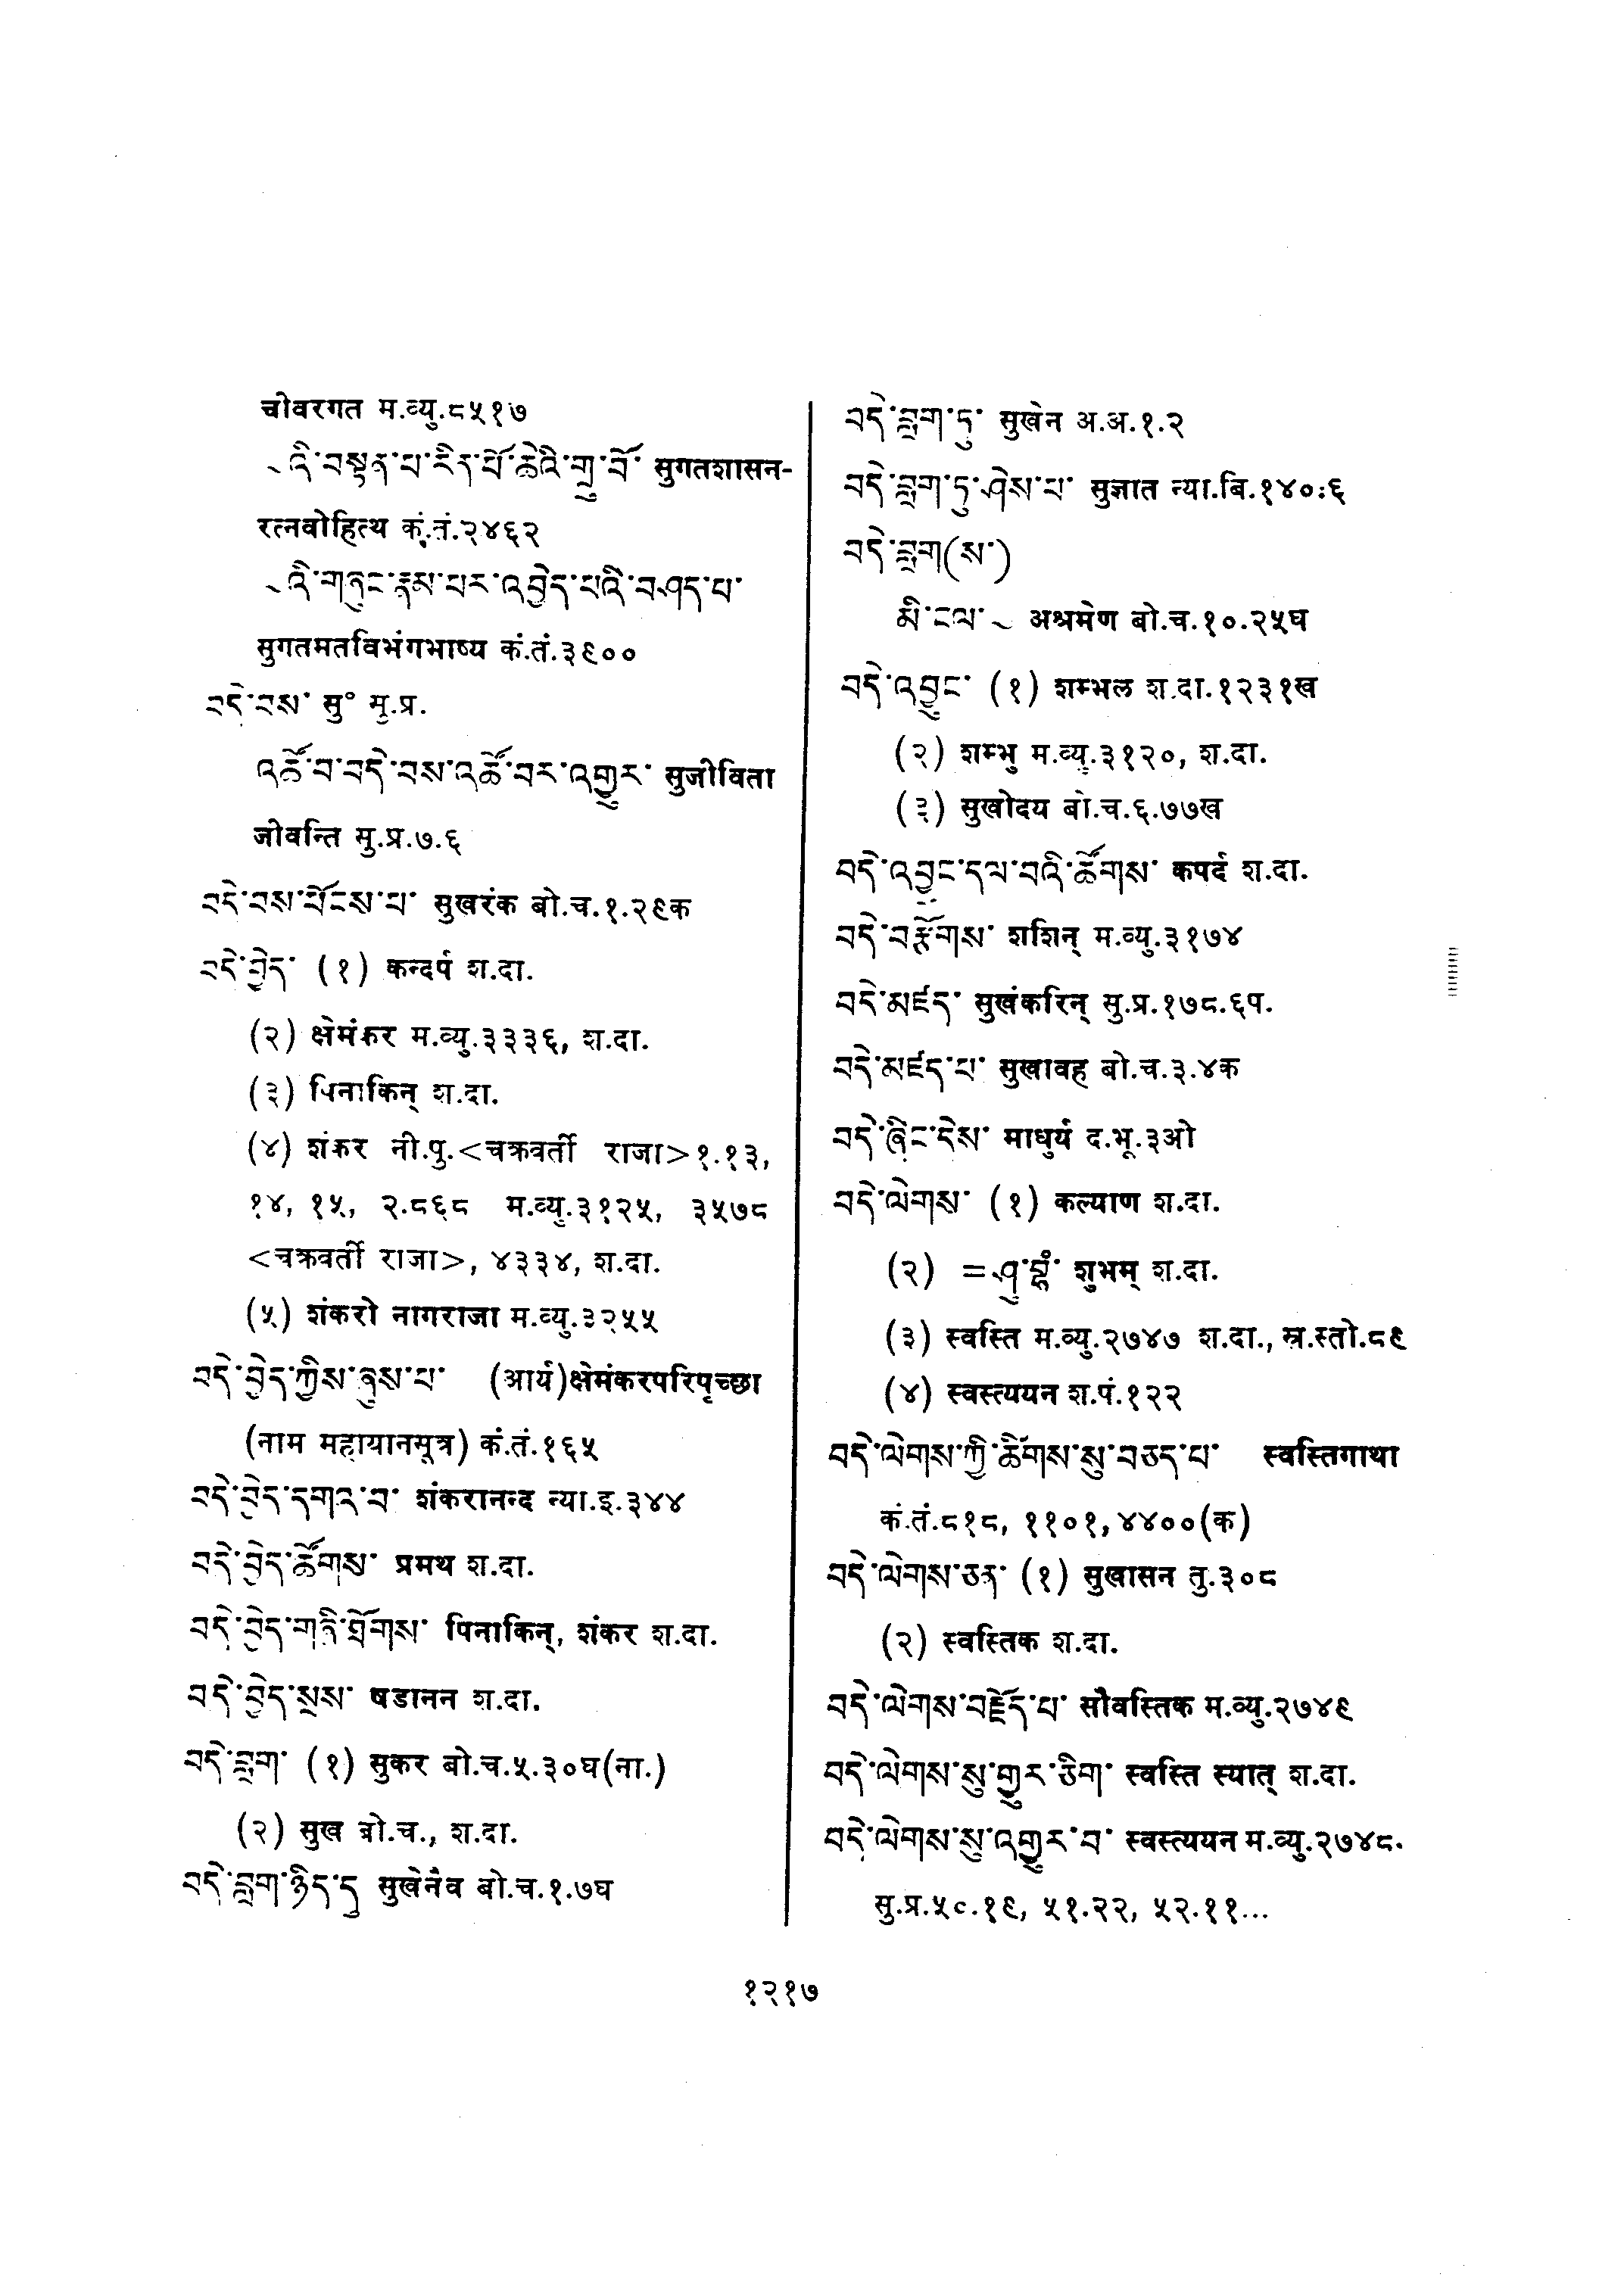 चीवरगत म.व्यु.८५१७
~འི་བསྟན་པ་རིན་པོ་ཆེའི་གྲུ་བོ་ सुगतशासन-
रत्नवोहित्थ कं.तं.२४६२
~འི་གཞུང་རྣམ་པར་འབྱེད་པའི་བཤད་པ་
सुगतमतविभंगभाष्य कं.तं.३९००
བདེ་བས་ सु° मु.प्र.
འཚོ་བ་བདེ་བས་འཚོ་བར་འགྱུར་ सुजीविता
जीवन्ति मु.प्र.७.६
བདེ་བས་ཕོངས་པ་ सुखरंक बो.च.१.२९क
བདེ་བྱེད་ (१) कन्दर्प श.दा.
(२) क्षेमंकर म.व्यु.३३३६, श.दा.
(३) पिनाकिन् श.दा.
(४) शंकर नी.पु.<चक्रवर्ती राजा>१.१३,
१४, १५, २.८६८ म.व्यु.३१२५, ३५७८
<चक्रवर्ती राजा>, ४३३४, श.दा.
(५) शंकरो नागराजा म.व्यु.३२५५
བདེ་བྱེད་ཀྱིས་ཞུས་པ་ (आर्य)क्षेमंकरपरिपृच्छा
(नाम महायानसूत्र) कं.तं.१६५
བདེ་བྱེད་དགའ་བ་ शंकरानन्द न्या.इ.३४४
བདེ་བྱེད་ཚོགས་ प्रमथ श.दा.
བདེ་བྱེད་གཉི་ཐོགས་ पिनाकिन्, शंकर श.दा.
བདེ་བྱེད་སྲས་ षडानन श.दा.
བདེ་བླག་ (१) सुकर बो.च.५.३०घ(ना.)
(२) सुख बो.च., श.दा.
བདེ་བླག་ཉིད་དུ सुखेनैव बो.च.१.७घ
བདེ་བླག་ཏུ་ सुखेन अ.अ.१.२
བདེ་བླག་ཏུ་ཤེས་པ་ सुज्ञात न्या.बि.१४०:६
བདེ་བླག(ས་)
མི་ངལ་ ~ अश्रमेण बो.च.१०.२५घ
བདེ་འབྱུང་ (१) शम्भल श.दा.१२३१ख
(२) शम्भु म.व्यु.३१२०, श.दा.
(३) सुखोदय बो.च.६.७७ख
བདེ་འབྱུང་དལ་བའི་ཚོགས་ कपर्द श.दा.
བདེ་བརྩོགས་ शशिन् म.व्यु.३१७४
བདེ་མཛད་ सुखंकरिन् सु.प्र.१७८.६प.
བདེ་མཛད་པ་ सुखावह बो.च.३.४क
བདེ་ཞིང་དེས་ माधुर्य द.भू.३ओ
བདེ་ལེགས་ (१) कल्याण श.दा.
(२) =ཤུ་བྷཾ་ शुभम् श.दा.
(३) स्वस्ति म.व्यु.२७४७ श.दा., स्र.स्तो.८९
(४) स्वस्त्ययन श.पं.१२२
བདེ་ལེགས་ཀྱི་ཚིགས་སུ་བཅད་པ་ स्वस्तिगाथा
कं.तं.८१८, ११०१, ४४००(क)
བདེ་ལེགས་ཅན་ (१) सुखासन तु.३०८
(२) स्वस्तिक श.दा.
བདེ་ལེགས་བརྗོད་པ་ सौवस्तिक म.व्यु.२७४९
བདེ་ལེགས་སུ་གྱུར་ཅིག་ स्वस्ति स्यात् श.दा.
བདེ་ལེགས་སུ་འགྱུར་བ་ स्वस्त्ययन म.व्यु.२७४८.
सु.प्र.५०.१९, ५१.२२, ५२.११...
१२१७